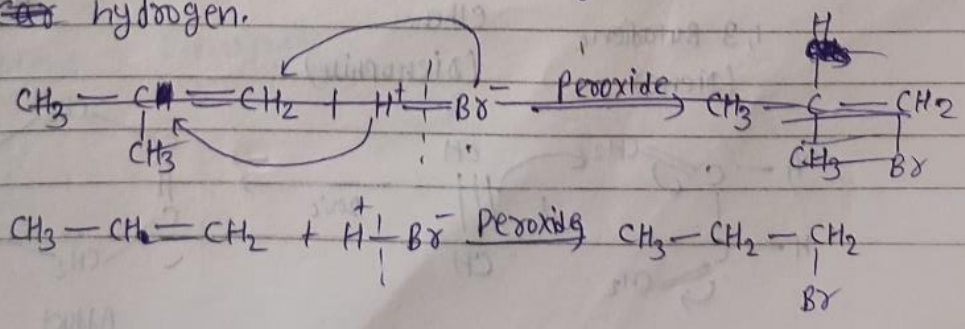 hydrogen.
H
CH3 — C = CH2 + H+ — Br- Peroxide → CH3 — C — CH2
CH3 CH3 Br
CH3 — CH = CH2 + H+ — Br- Peroxide → CH3 — CH2 — CH2
Br